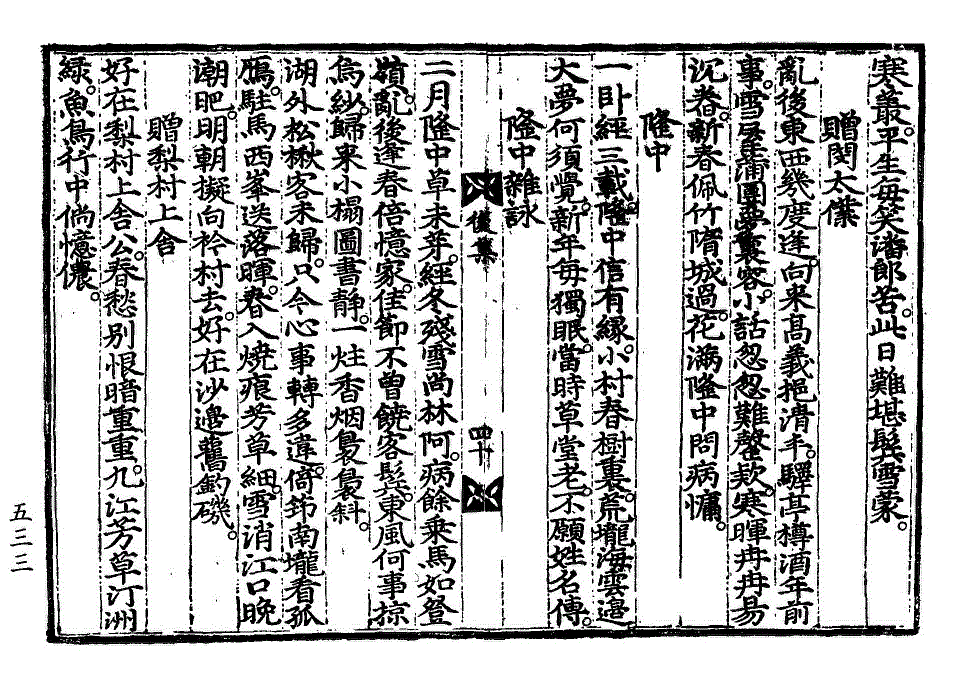 寒叢。平生每笑潘郎苦。此日難堪鬂雪蒙。
贈閔太僕
亂後東西幾度逢。向來高義挹淸丰。驛亭樽酒年前
事。雪屋蒲團夢裏容。小話忽忽難罄欵。寒暉冉冉易
沉舂。新春佩竹隋城過。花滿隆中問病慵。
隆中
一卧經三載。隆中信有緣。小村春樹裏。荒壠海雲邊。
大夢何須覺。新年每獨眠。當時草堂老。不願姓名傳。
隆中雜詠
後集
四十
二月隆中草未芽。經冬殘雪尚林阿。病餘乗馬如登
嶺。亂後逢春倍憶家。佳節不曾饒客鬂。東風何事掠
烏紗。歸來小榻圖書靜。一炷香烟裊裊斜。
湖外松楸客未歸。只今心事轉多違。倚筇南壠看孤
鴈。駐馬西峯送落暉。春入燒痕芳草細。雪消江口晩
潮肥。明朝擬向衿村去。好在沙邊舊釣磯。
贈梨村上舍
好在梨村上舍公。春愁別恨暗重重。九江芳草汀洲
綠。魚鳥行中倘憶儂。
五三三